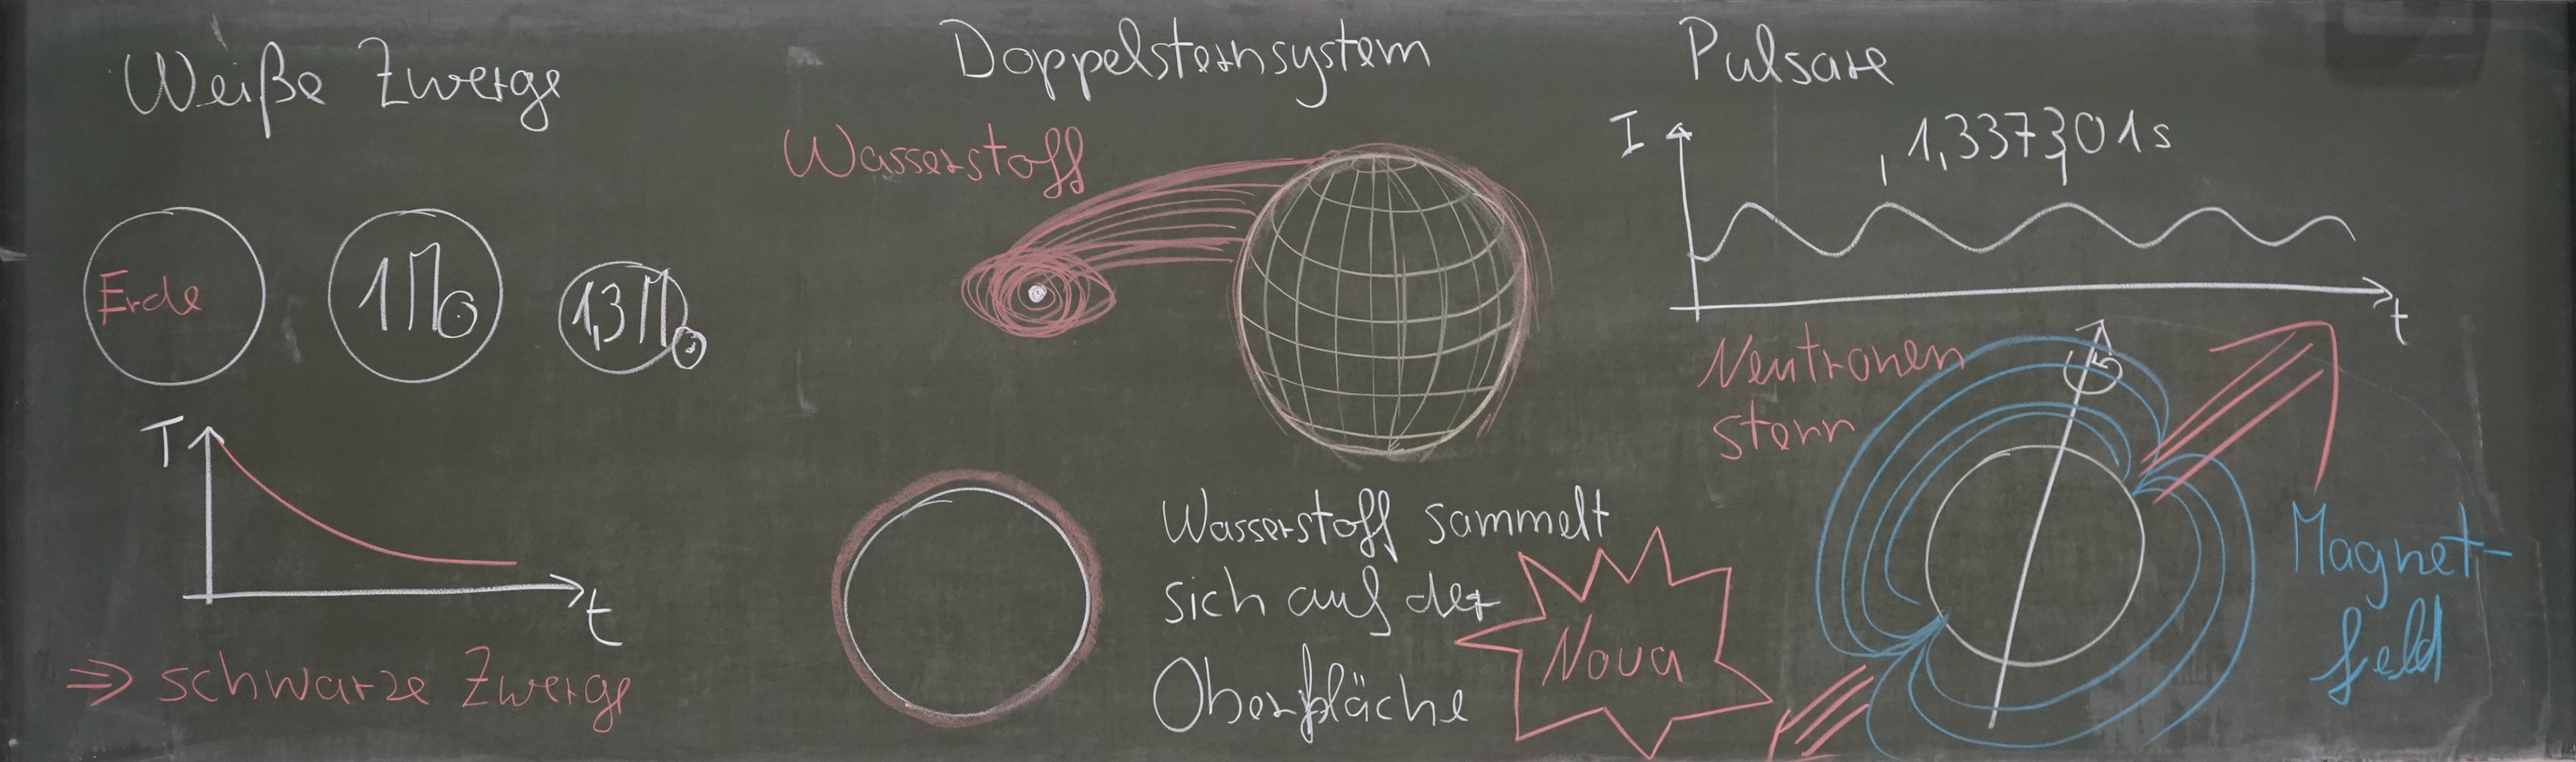 Weiße Zwerge
Erde
1M⊙
1,3M⊙
T
t
⇒ schwarze Zwerge
Doppelsternsystem
Wasserstoff
Wasserstoff sammelt
sich auf der
Oberfläche
Nova
Pulsare
I
1,337301s
t
Neutronen
stern
Magnet-
feld